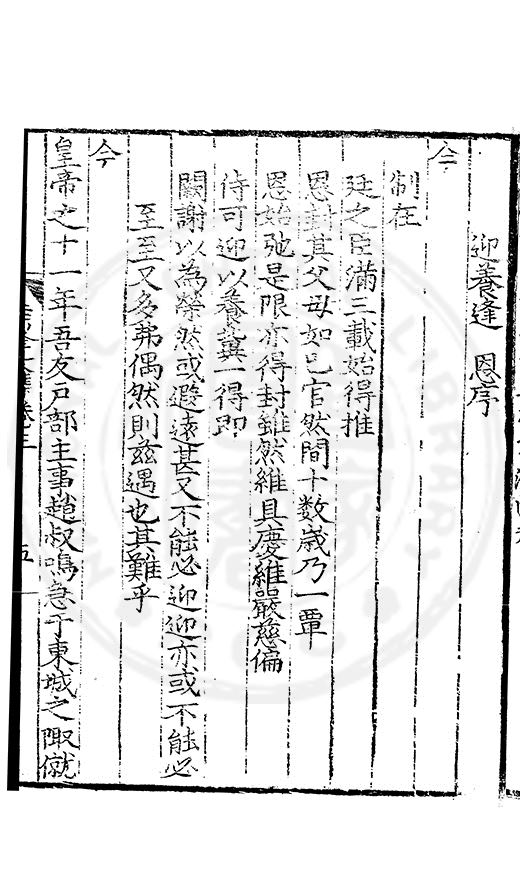 迎養逢　恩序
今
制在
廷之臣滿三載始得推
恩封其父母如己官然間十数歲乃一覃
恩始弛是限亦得封雖然維具慶維嚴慈偏
侍可迎以養冀一得即
闕謝以為榮然或遐遠甚又不能必迎迎亦或不能必
至至又多弗偶然則茲遇也其難乎
今
皇帝之十一年吾友戶部主事趙叔鳴急于東城之陬僦